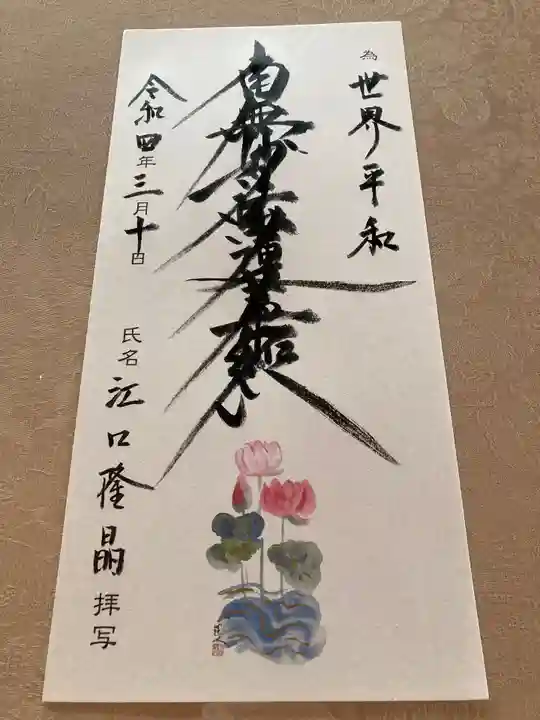 為世界平和
南無妙法蓮華経
令和四年三月十日
氏名江口隆晶拝写